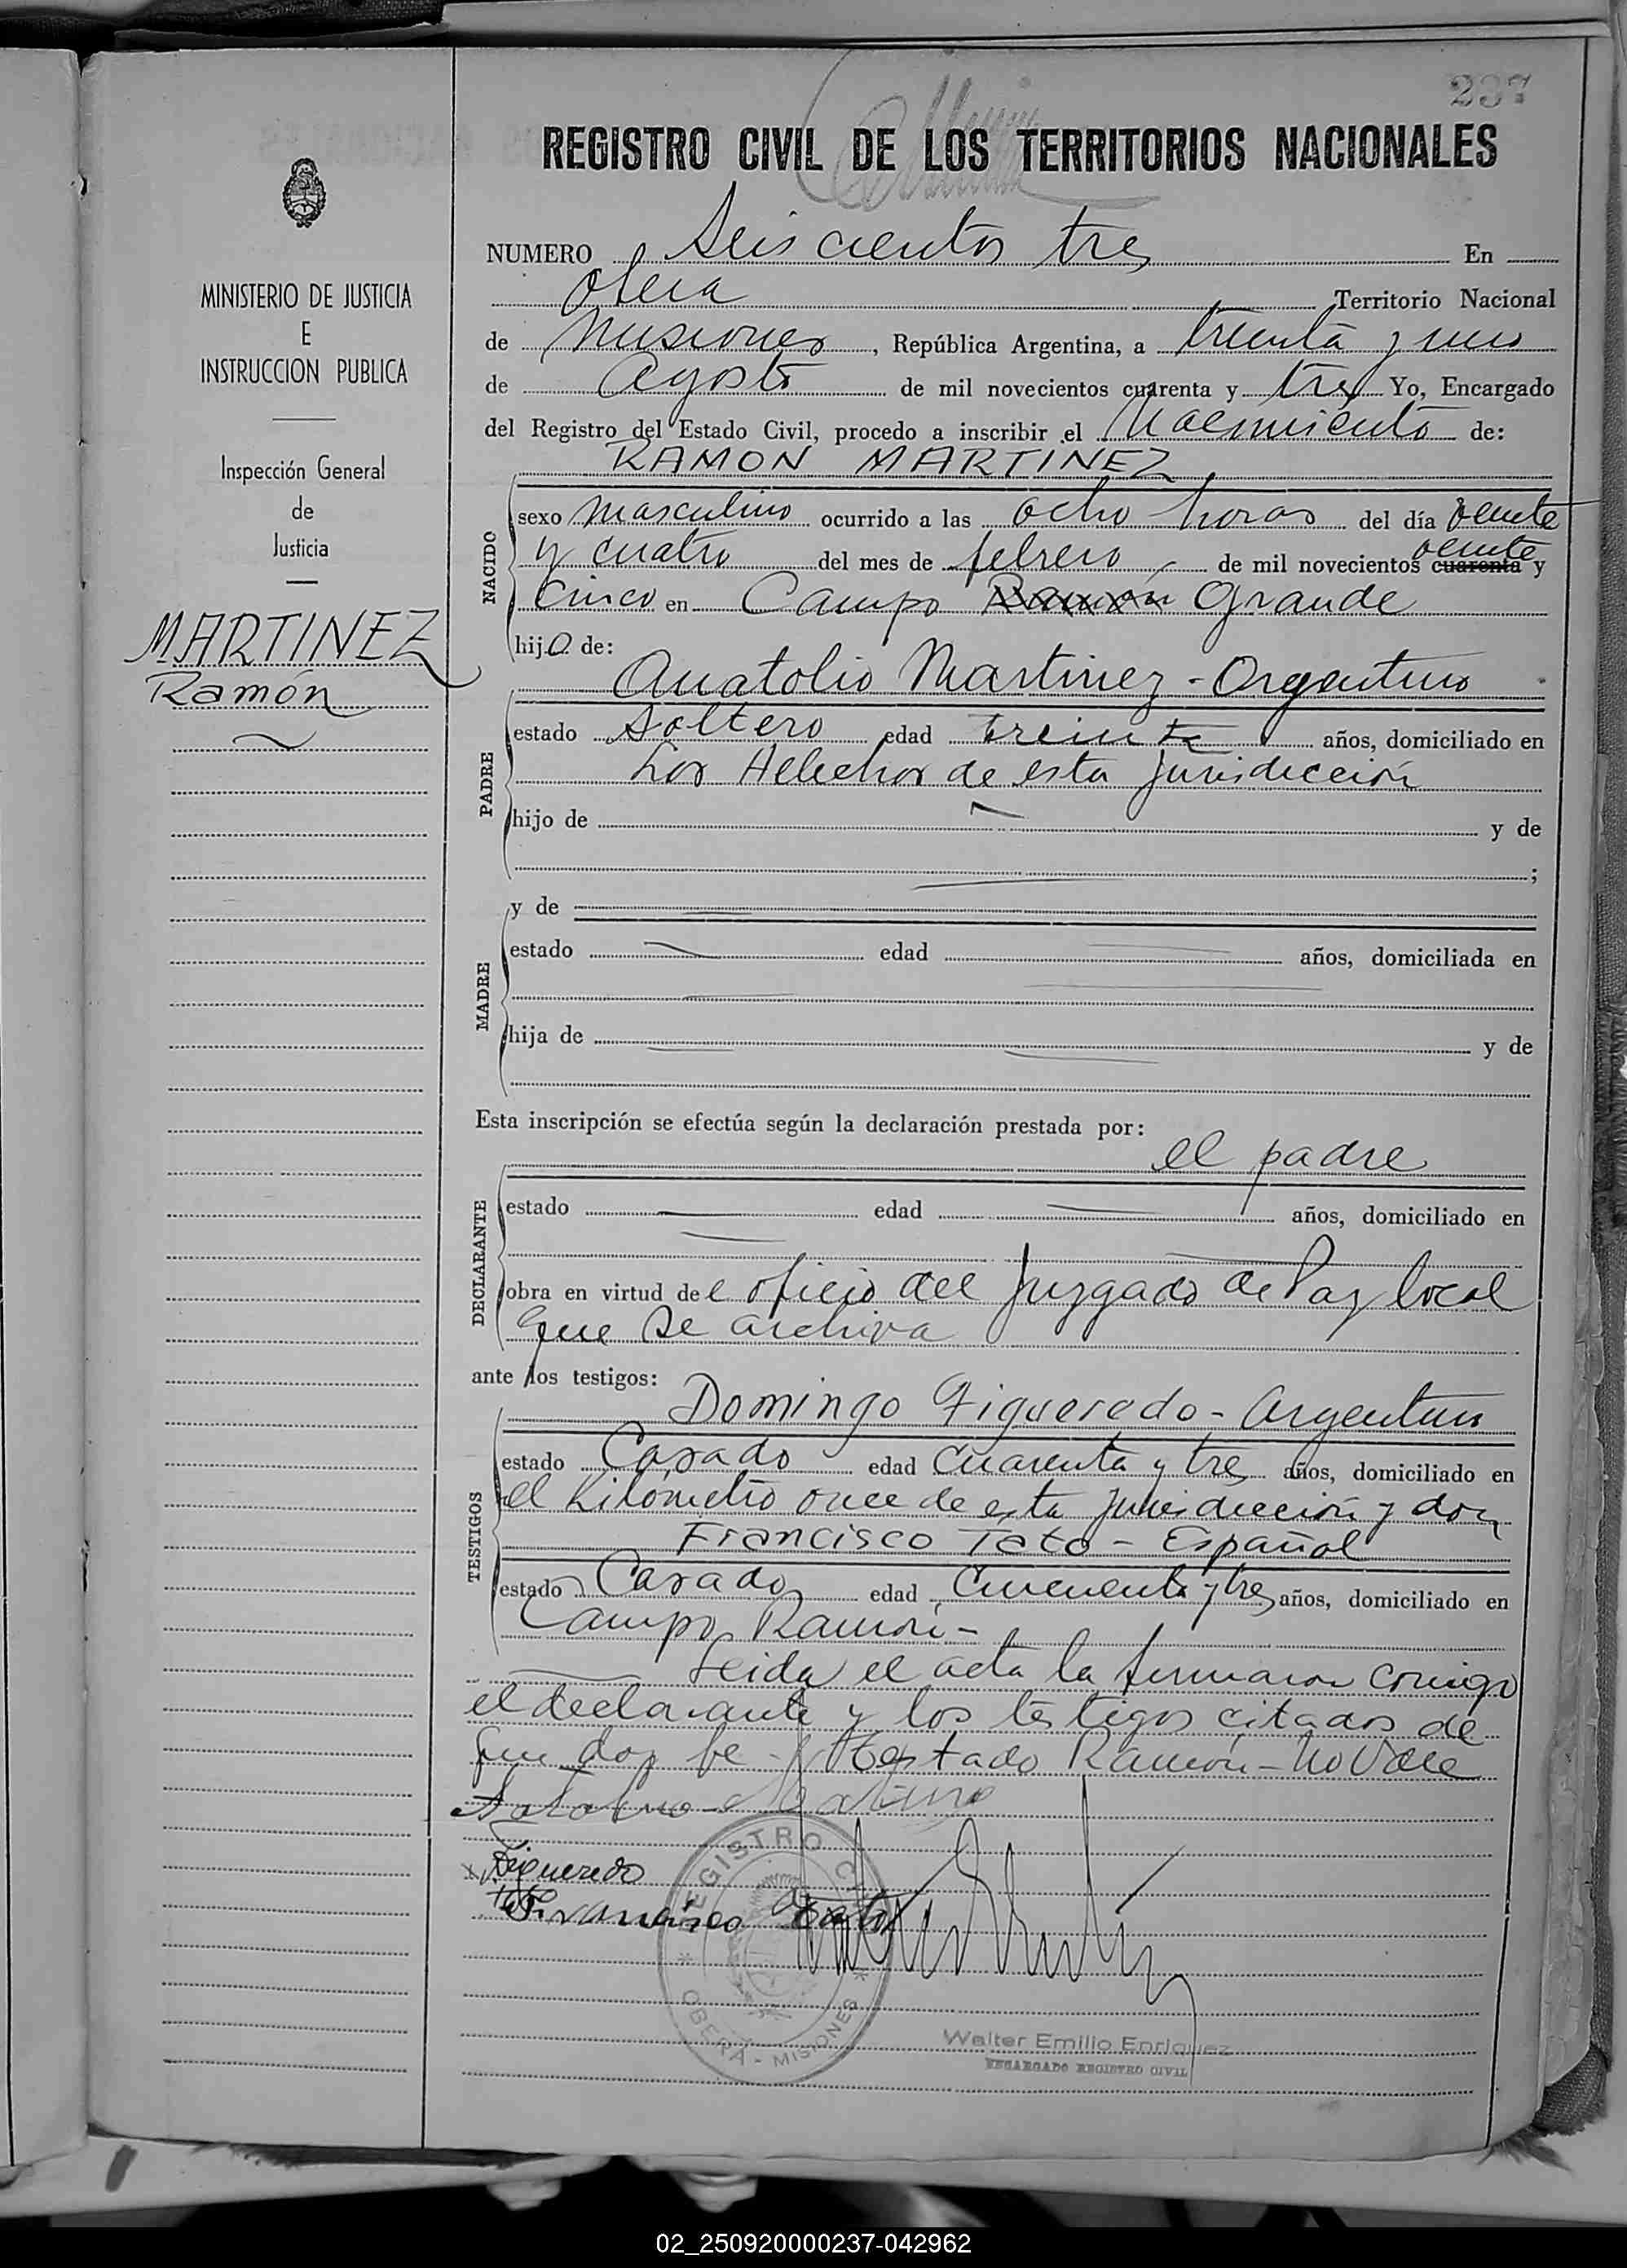 237
REGISTRO CIVIL DE LOS TERRITORIOS NACIONALES
NUMERO Seiscientos tres En
Oberá Territorio Nacional
de Misiones, República Argentina, a treinta y uno
de Agosto de mil novecientos cuarenta y tres Yo, Encargado
del Registro del Estado Civil, procedo a inscribir el Nacimiento de:
RAMON MARTINEZ
MINISTERIO DE JUSTICIA
E
INSTRUCCION PUBLICA
Inspección General
de
Justicia
MARTINEZ
Ramón
NACIDO
sexo masculino ocurrido a las ocho horas del día veinte
y cuatro del mes de febrero de mil novecientos cuarenta veinte y
cinco en Campo Ramón Grande
hijo de:
Anatolio Martinez - Argentino
PADRE
estado soltero edad treinta años, domiciliado en
Los Helechos de esta jurisdicción
hijo de y de
;
y de
MADRE
estado edad años, domiciliada en
hija de y de
Esta inscripción se efectúa según la declaración prestada por:
el padre
DECLARANTE
estado edad años, domiciliado en
obra en virtud del oficio del Juzgado de Paz local
que se archiva
ante los testigos:
Domingo Figueredo - Argentino
TESTIGOS
estado Casado edad Cuarenta y tres años, domiciliado en
el Kilómetro once de esta jurisdicción y don
Francisco Tato - Español
estado Casado edad Cincuenta y tres años, domiciliado en
Campo Ramón -
Leida el acta la firmaron conmigo
el declarante y los testigos citados de
que doy fe - Testado Ramón - No Vale
Figueredo
Francisco Tato
REGISTRO CIVIL
OBERÁ - MISIONES
Walter Emilio Enriquez
ENCARGADO REGISTRO CIVIL
02_250920000237-042962